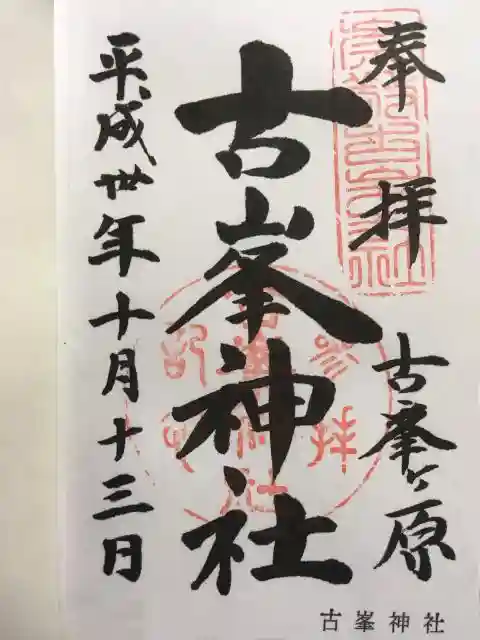 奉拝
古峯ヶ原
古峯神社
平成卅年十月十三日
参拝記念
古峯神社